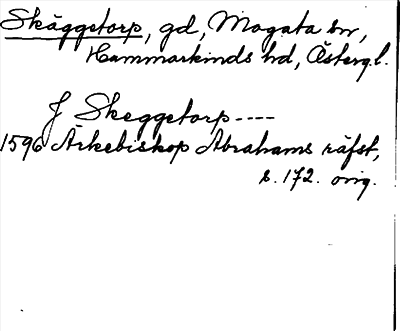 Skäggetorp, gd, Mogata sn,
Hammarkinds hd, Östergl.
J Skeggetorp----
1596 Ärkebiskop Abrahams räfst,
s. 172. orig.